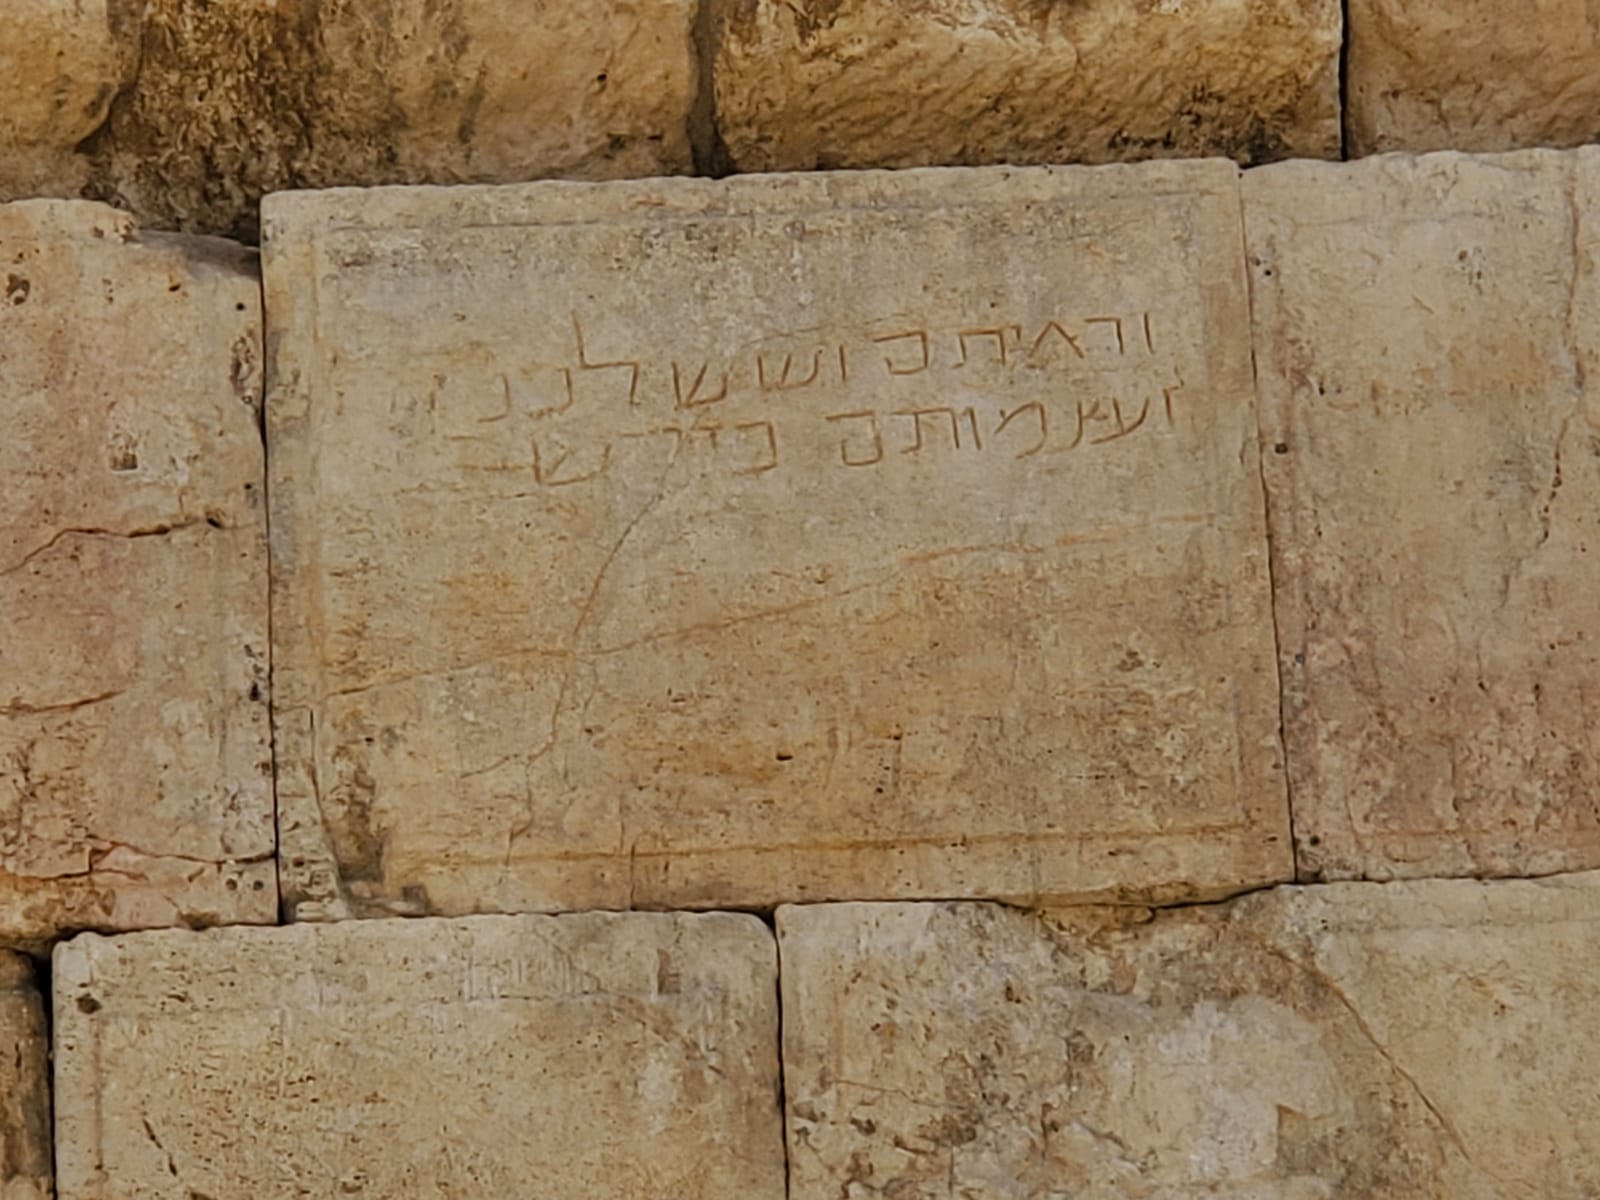 וראיתם ושש לבכם
ועצמותם כדשא